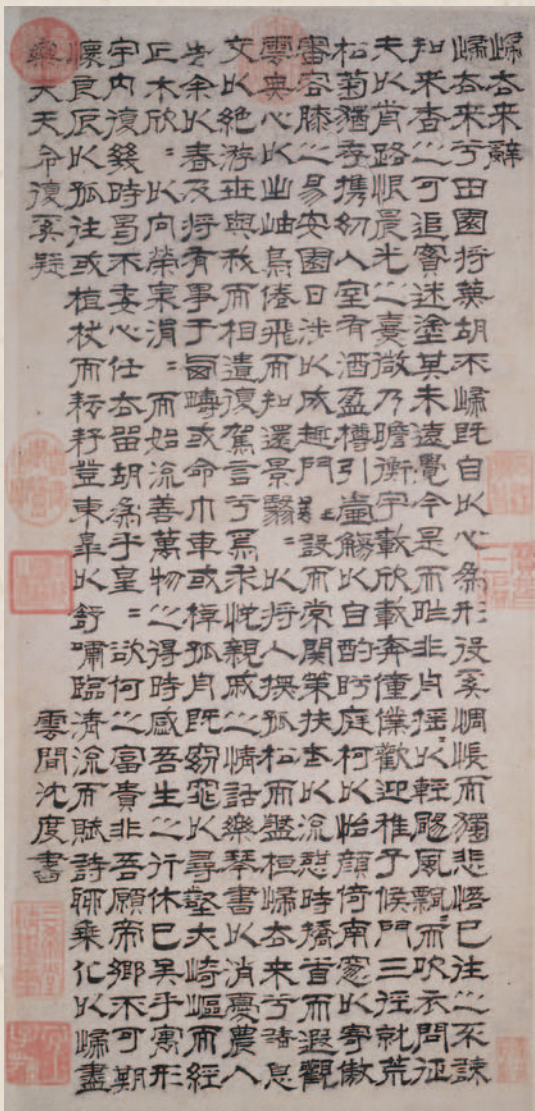 歸去来辭
歸去来兮田園将蕪胡不歸既自以心為形役奚惆悵而獨悲悟已往之不諫
知来者之可追實迷塗其未遠覺今是而昨非舟搖〻以輕颺風飄〻而吹衣問征
夫以前路恨晨光之熹微乃瞻衡宇載欣載奔僮僕歡迎稚子候門三徑就荒
松菊猶存携幼入室有酒盈樽引壺觴以自酌眄庭柯以怡顏倚南窓以寄傲
審容膝之易安園日涉以成趣門雖設而常關策扶老以流憩時矯首而遐觀
雲無心以出岫鳥倦飛而知還景翳〻以将入撫孤松而盤桓歸去来兮請息
交以絶游世與我而相遺復駕言兮焉求悦親戚之情話樂琴書以消憂農人
告余以春及将有事于西疇或命巾車或棹孤舟既窈窕以尋壑亦崎嶇而經
丘木欣〻以向榮泉涓〻而始流善萬物之得時感吾生之行休已矣乎寓形
宇内復幾時曷不委心任去留胡為乎皇〻欲何之富貴非吾願帝鄉不可期
懷良辰以孤往或植杖而耘耔登東皋以舒嘯臨清流而賦詩聊乘化以歸盡
樂夫天命復奚疑
雲間沈度書
三希堂精鑑璽
宜子孫